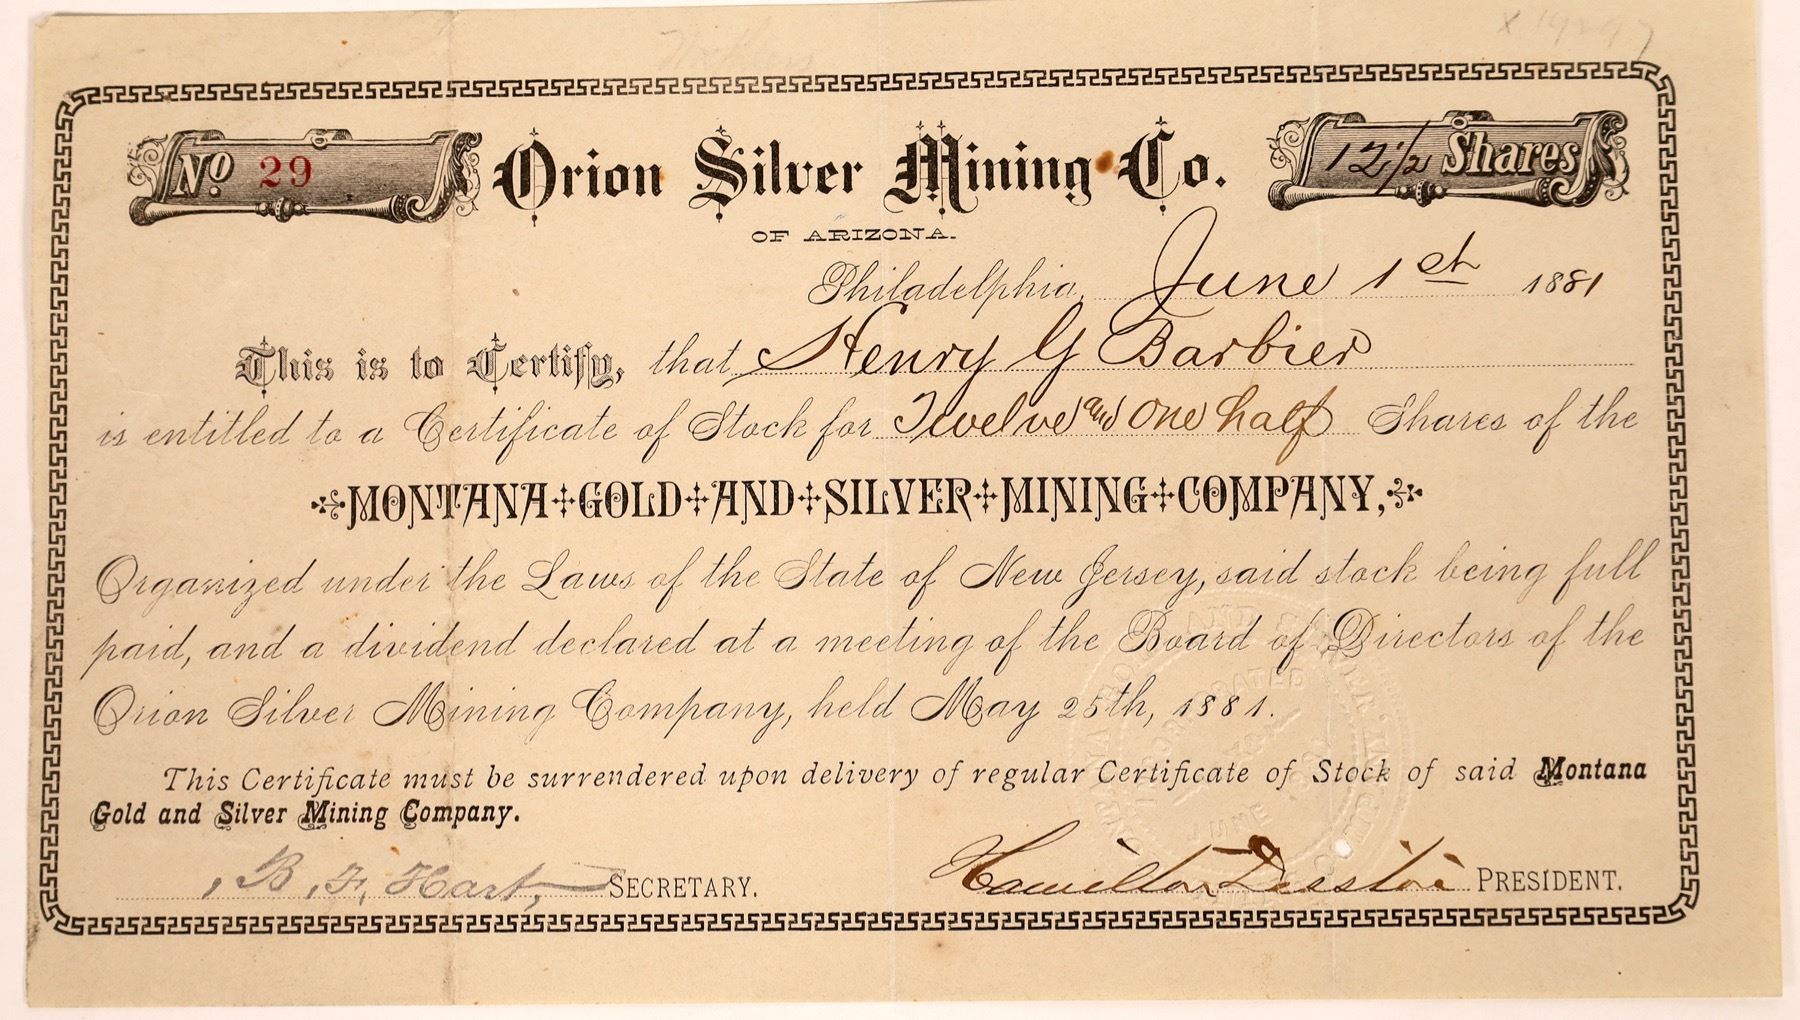 x 19297
No 29
Orion Silver Mining Co.
12 1/2 Shares
OF ARIZONA.
Philadelphia, June 1st 1881
This is to Certify, that Henry G Barbier
is entitled to a Certificate of Stock for Twelve and One half Shares of the
MONTANA GOLD AND SILVER MINING COMPANY,
Organized under the Laws of the State of New Jersey, said stock being full
paid, and a dividend declared at a meeting of the Board of Directors of the
Orion Silver Mining Company, held May 25th, 1881.
This Certificate must be surrendered upon delivery of regular Certificate of Stock of said Montana
Gold and Silver Mining Company.
B. F. Hart, SECRETARY.
Hamilton Disston PRESIDENT.